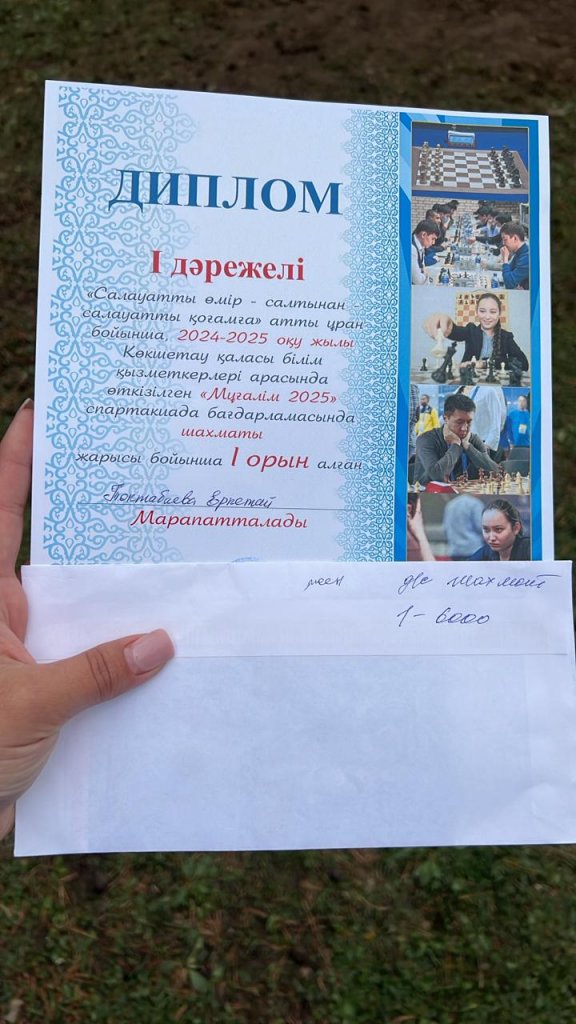 ДИПЛОМ
І дәрежелі
«Салауатты өмір - салтынан
салауатты қоғамға» атты ұран
бойынша, 2024-2025 оқу жылы
Көкшетау қаласы білім
қызметкерлері арасында
өткізілген «Мұғалім 2025»
спартакиада бағдарламасында
шахматы
жарысы бойынша І орын алған
Токтабаева Еркетай
Марапатталады
шахмат
1- 6000